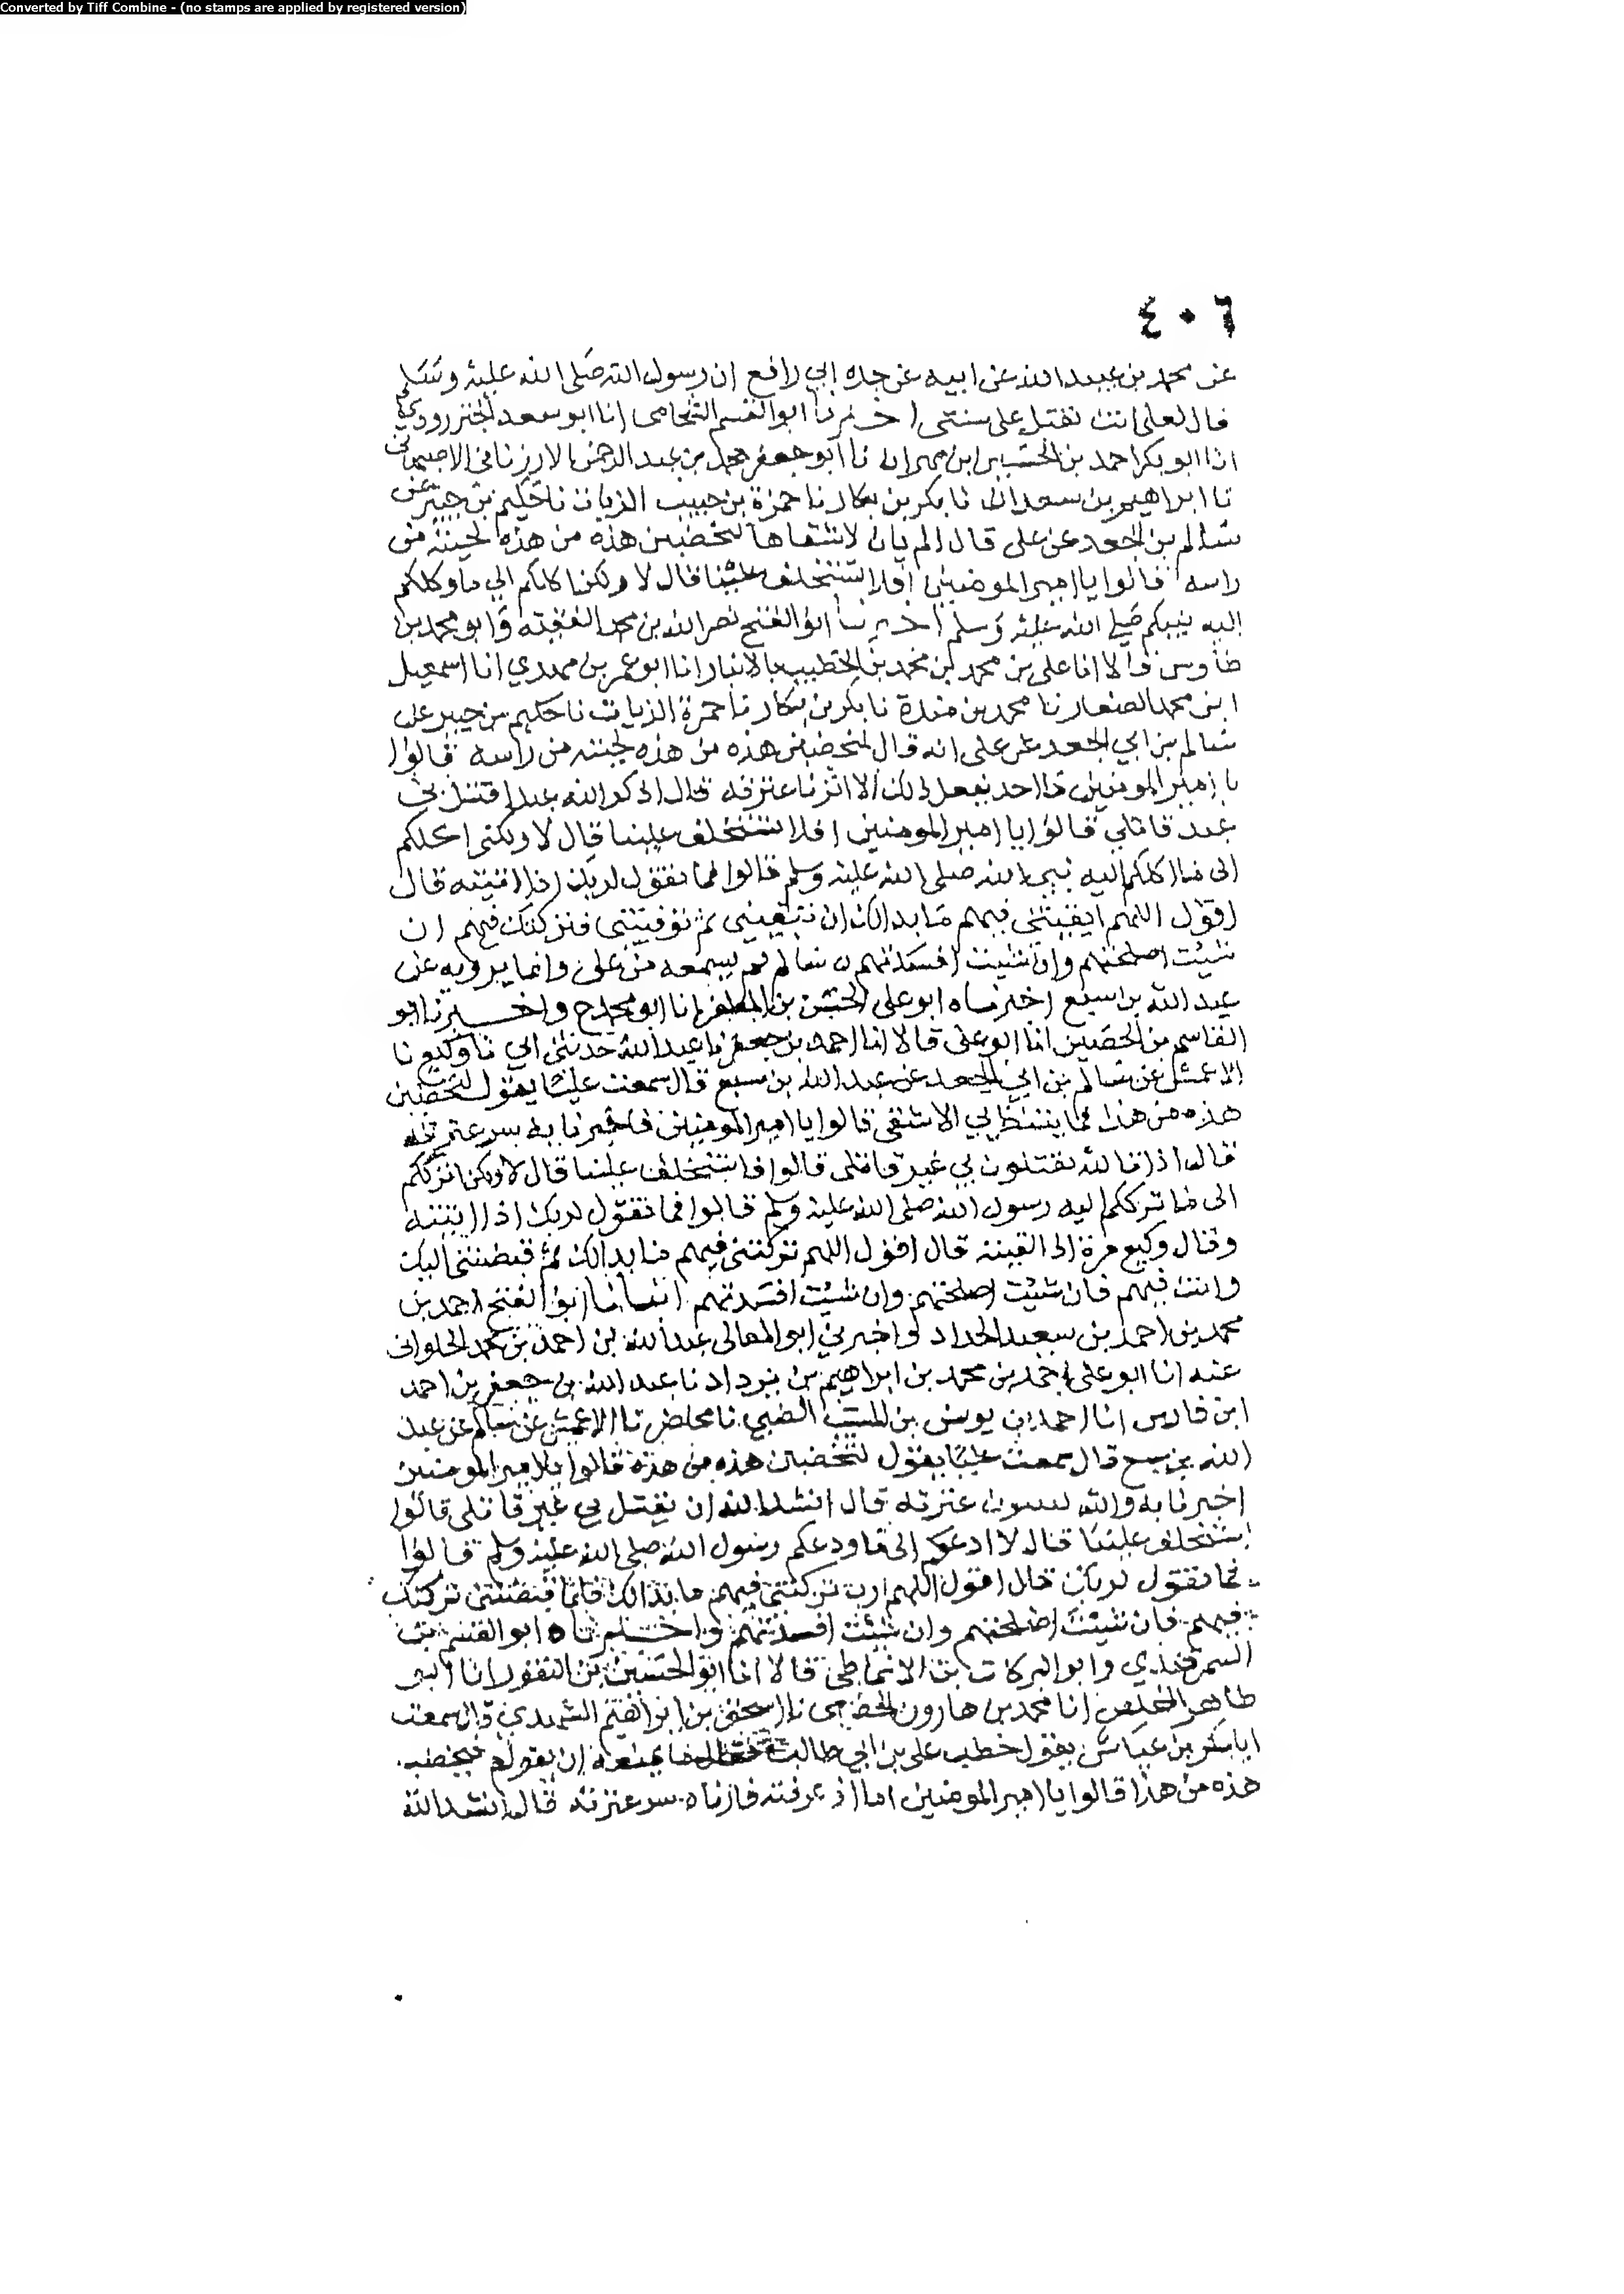 Converted by Tiff Combine - (no stamps are applied by registered version)
٤٠٦
عن محمد بن عبيد الله عن ابيه عن جده ابي رافع ان رسول الله صلى الله عليه وسلم
قال لعلى انت تقتل على سنتى اخبرنا ابو القسم الشحامى انا ابو سعد الجنزرودي
انا ابو بكر احمد بن الحسين ابن مهران نا ابو جعفر محمد بن عبد الرحمن الارزنانى الاصبهانى
نا ابراهيم بن سعدان نا بكر بن بكار نا حمزة بن حبيب الزيات نا حكيم بن جبير عن
سالم بن الجعد عن على قال الم يان لاشقاها لتخضبن هذه من هذه لحيته من
راسه قالوا يا امير المومنين افلا تستخلف علينا قال لا ولكن اكلكم الى ما وكلكم
اليه نبيكم صلى الله عليه وسلم اخبرنا ابو الفتح نصر الله بن محمد الفقيه وابو محمد بن
طاوس قالا انا على بن محمد بن محمد بن الخطيب بالانبار انا ابو عمر بن مهدي انا اسمعيل
ابن محمد الصفار نا محمد بن مندة نا بكر بن بكار نا حمزة الزيات نا حكيم بن جبير عن
سالم بن ابي الجعد عن على انه قال لتخضبن هذه من هذه لحيته من راسه قالوا
يا امير المومنين ما احد يفعل ذلك الا ابرنا عترته قال اذكر الله عبدا قتل بي
عبد قاتلي قالوا يا امير المومنين افلا تستخلف علينا قال لا ولكنى اكلكم
الى ما اكلكم اليه نبى الله صلى الله عليه وسلم قالوا فما تقول لربك اذا اتيته قال
اقول اللهم ابقيتنى فيهم ما بدا لك ان تبقينى ثم توفيتنى فتركتك فيهم ان
شيت اصلحتهم وان شيت افسدتهم سالم لم يسمعه من على وانما يرويه عن
عبد الله بن سبع اخبرناه ابو على الحسن بن المظفر انا ابو محمد ح واخبرنا ابو
القاسم بن الحصين انا ابو على قالا انا احمد بن جعفر نا عبد الله حدثنى ابي نا وكيع نا
الاعمش عن سالم بن ابي الجعد عن عبد الله بن سبع قال سمعت عليا يقول لتخضبن
هذه من هذا فما ينتظر بي الاشقى قالوا يا امير المومنين فاخبرنا به نبير عترته
قال اذا تالله تقتلون بي غير قاتلى قالوا فاستخلف علينا قال لا ولكن اترككم
الى ما ترككم اليه رسول الله صلى الله عليه وسلم قالوا فما تقول لربك اذا اتيته
وقال وكيع مرة اذا لقيته قال اقول اللهم تركتنى فيهم ما بدا لك ثم قبضتنى اليك
وانت فيهم فان شيت اصلحتهم وان شيت افسدتهم انبانا ابو الفتح احمد بن
محمد بن احمد بن سعيد الحداد واخبرني ابو المعالى عبد الله بن احمد بن محمد الحلوانى
عنه انا ابو على احمد بن محمد بن ابراهيم بن يزداد نا عبد الله بن جعفر بن احمد
ابن فارس انا احمد بن يونس بن المسيب الضبي نا محاضر نا الاعمش عن سالم عن عبد
الله بن سبع قال سمعت عليا يقول لتخضبن هذه من هذه قالوا يا امير المومنين
اخبرنا به والله عترته قال انشد الله ان يقتل بي غير قاتلى قالوا
استخلف علينا قال لا ادعكم الى ما ودعكم رسول الله صلى الله عليه وسلم قالوا
فما تقول لربك قال اقول اللهم رب تركتنى فيهم ما بدا لك فلما قبضتنى تركتك
فيهم فان شيت اصلحتهم وان شئت افسدتهم واخبرناه ابو القسم بن
السمرقندي وابو البركات بن الانماطى قالا انا ابو الحسين بن النقور انا ابو
طاهر المخلص انا محمد بن هارون الحضرمى نا اسحق بن ابراهيم الشهيدي قال سمعت
ابا بكر بن عياش يقول خطب على بن ابي طالب فقال ما يمنعه ان يقوم فيخضب
هذه من هذا قالوا يا امير المومنين اما اذ عرفته فارناه نبير عترته قال انشد الله